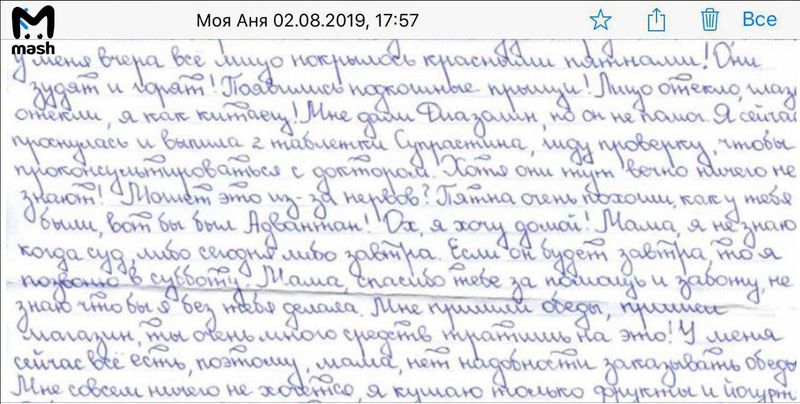 Моя Аня 02.08.2019, 17:57
Все
mash
У меня вчера всё лицо покрылось красными пятнами! Они
зудят и горят! Появились подкожные прыщи! Лицо отекло, глаза
отекли, я как китаец! Мне дали Диазолин, но он не помог. Я сейчас
проснулась и выпила 2 таблетки Супрастина, жду проверку, чтобы
проконсультироваться с доктором. Хотя они тут вечно ничего не
знают! Может это из-за нервов? Пятна очень похожи, как у тебя
были, вот бы был Адвантан! Ох, я хочу домой! Мама, я не знаю
когда суд, либо сегодня либо завтра. Если он будет завтра, то я
позвоню в субботу. Мама, спасибо тебе за помощь и заботу, не
знаю что бы я без тебя делала. Мне пришли обеды, пришёл
магазин, ты очень много средств тратишь на это! У меня
сейчас всё есть, поэтому, мама, нет надобности заказывать обеды
Мне совсем ничего не хочется, я кушаю только фрукты и йогурт